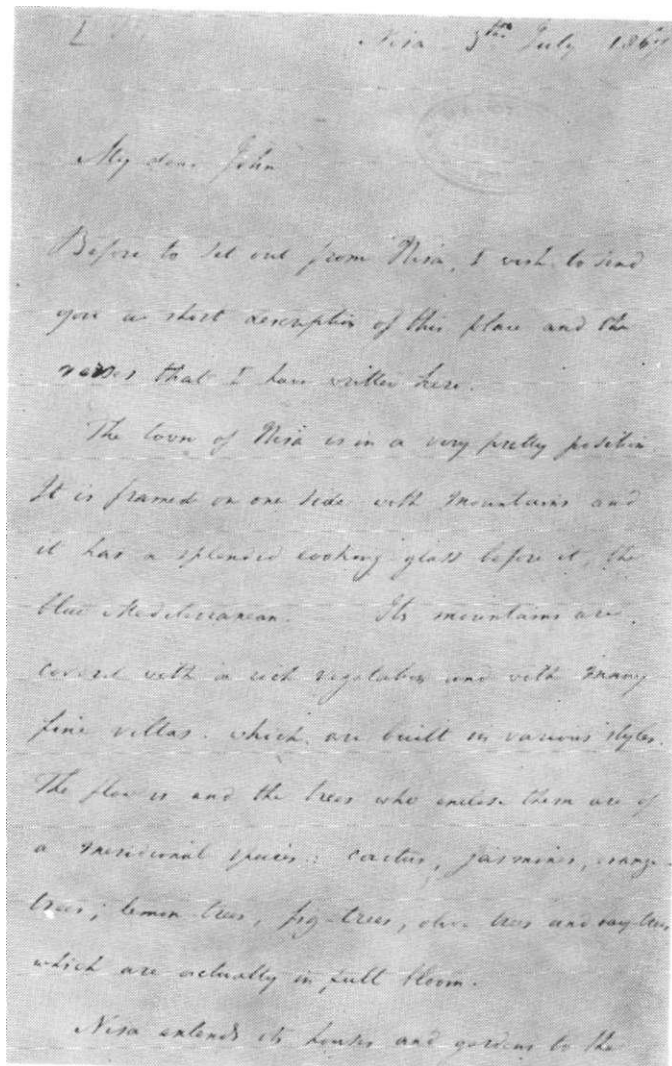 Nisa 5th July 186
My dear John
Before to set out from Nisa, I wish to send
you a short description of this place and the
verses that I have written here.
The town of Nisa is in a very pretty position
It is framed on one side with mountains and
it has a splendid looking glass before it, the
blue Mediterranean. Its mountains are
covered with a rich vegetation and with many
fine villas. which are built in various styles.
The flowers and the trees who enclose them are of
a meridional species: cactus, jasmines, orange-
trees; lemon-trees, fig-trees, olive trees and
which are actually in full bloom.
Nisa extends its houses and gardens to the